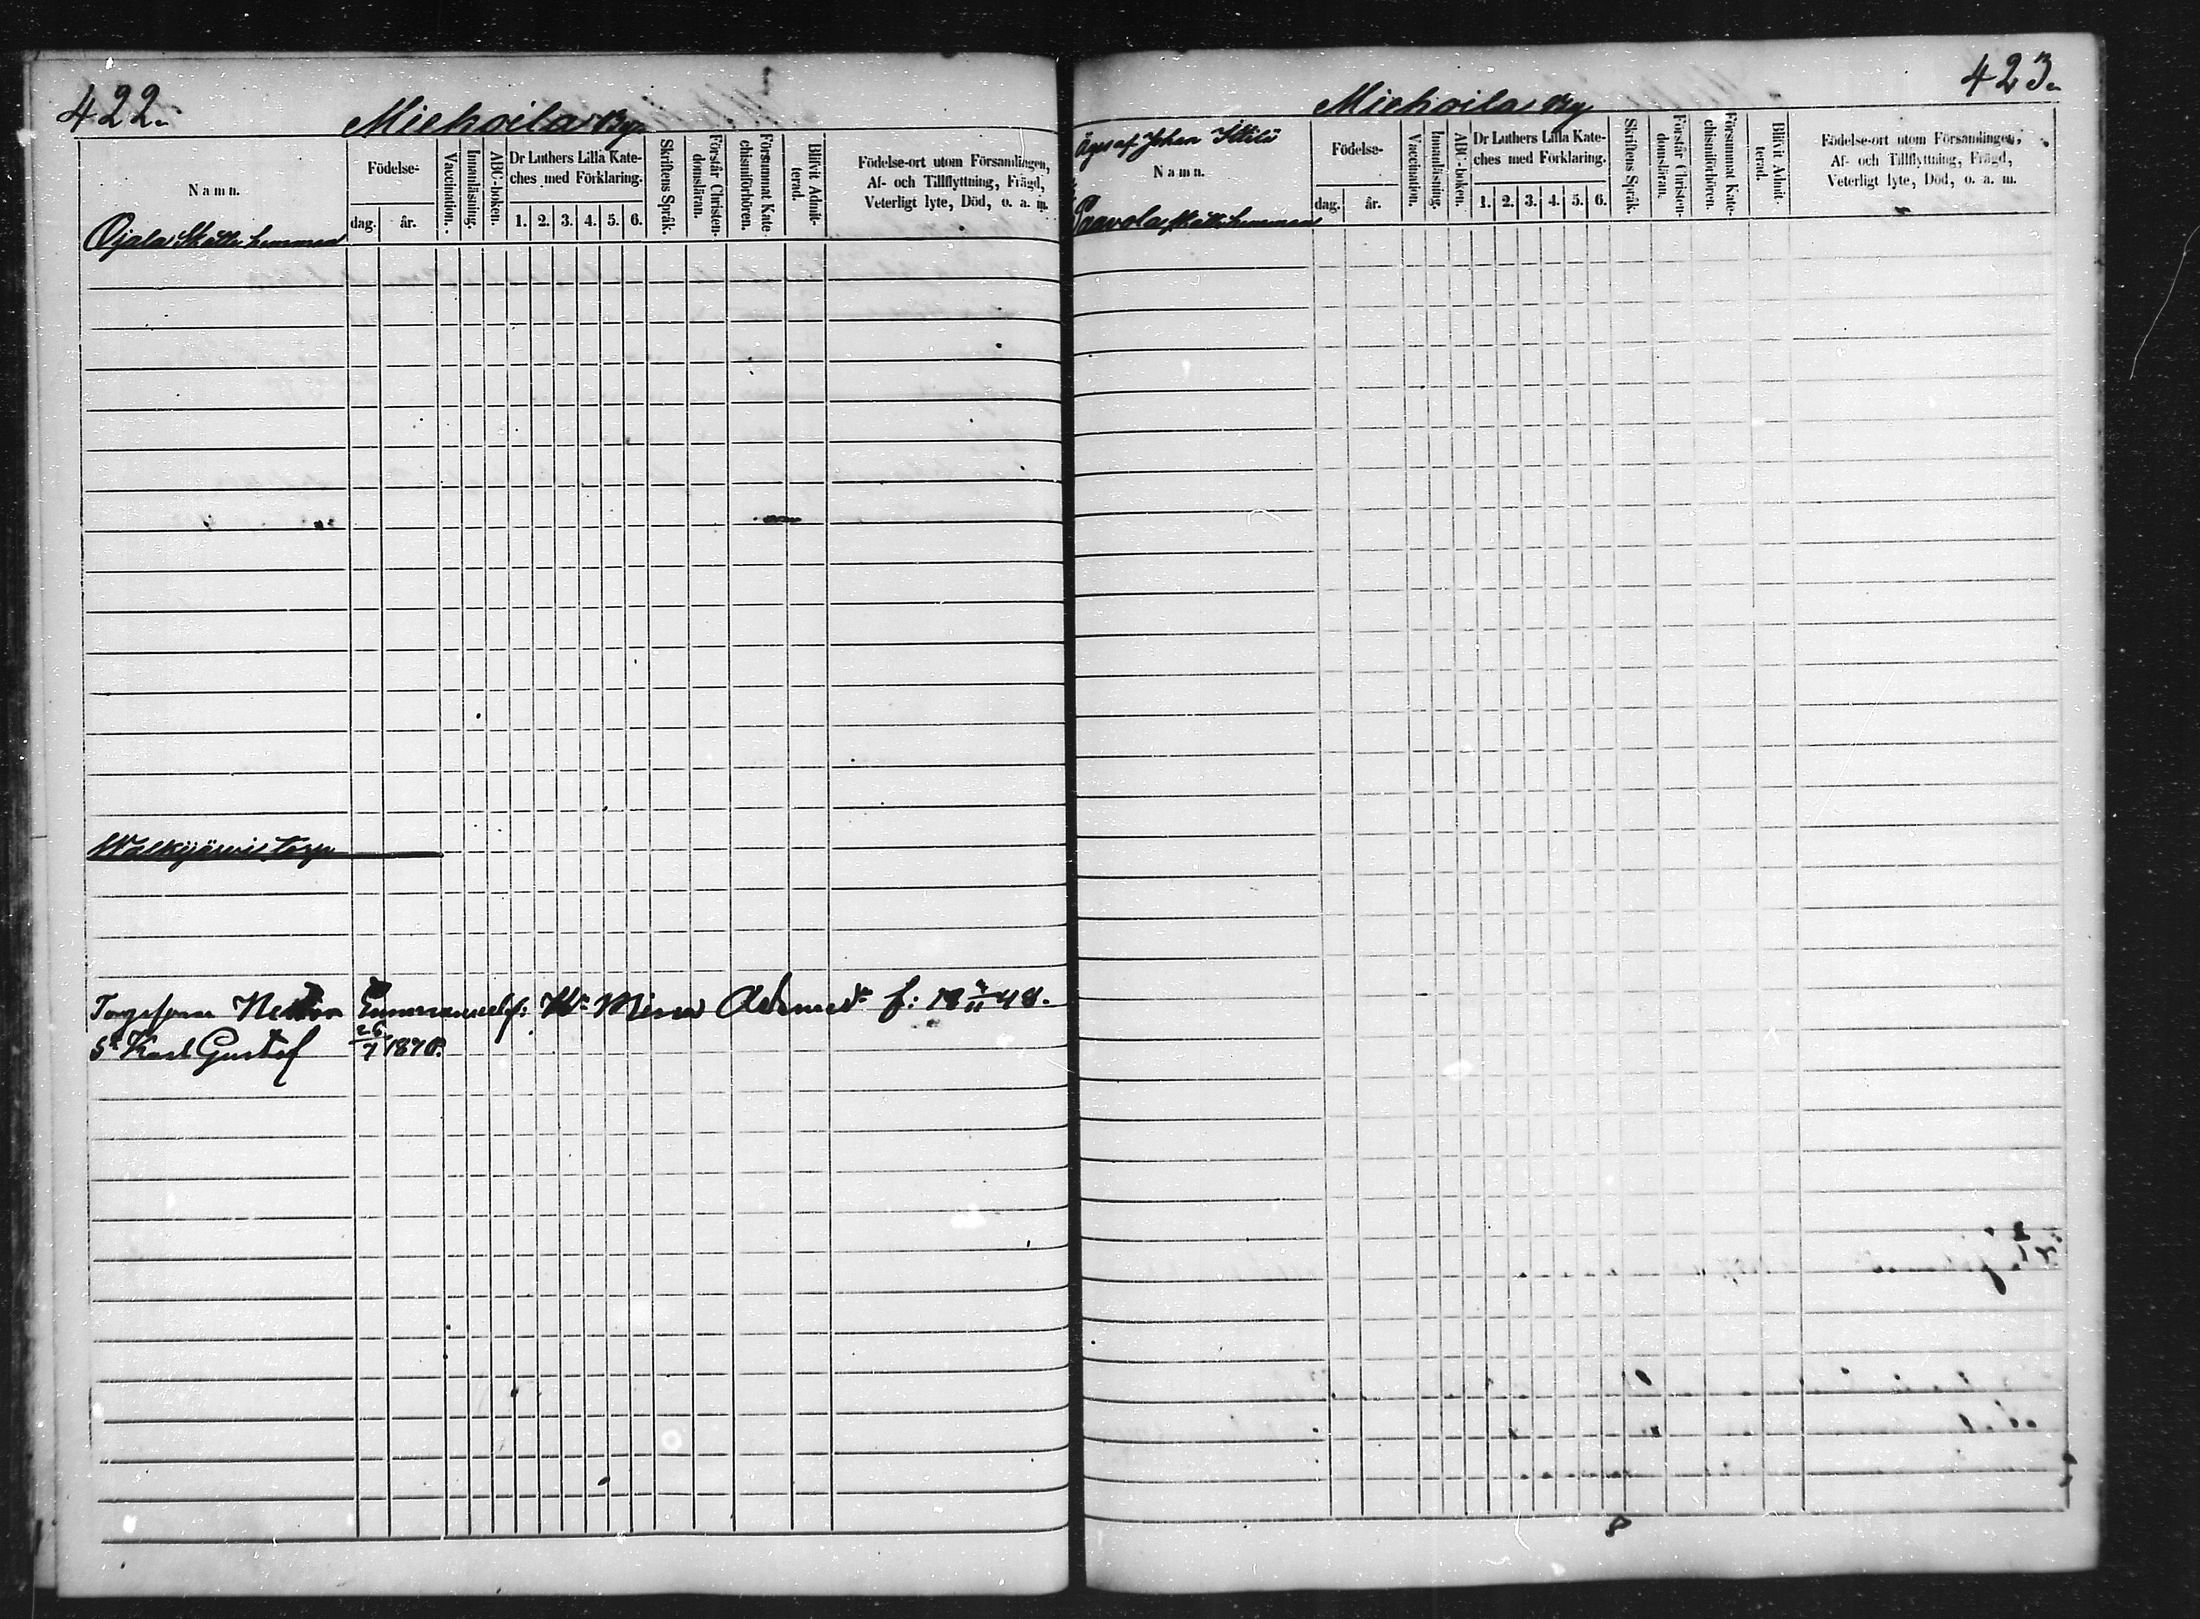 422.
Miehoila By
Namn.
Födelse-
dag. år.
Vaccination.
Innanläsning.
ABC-boken.
Dr Luthers Lilla Kate-
ches med Förklaring.
1. 2. 3. 4. 5. 6.
Skriftens Språk.
Förstår Christen-
domsläran.
Försummat Kate-
chismiförhören.
Blifvit Admit-
terad.
Födelse-ort utom Församlingen,
Af- och Tillflyttning, Frägd,
Veterligt lyte, Död, o. a. m.
Ojala Skatte hemman
Walkjärvi torp
Nestor Emmanuelss: H. Mina f: 18 48.
Sn Karl Gustaf 26/7 1870.
423.
Miehoila By
Äges af Johan
Namn.
Födelse-
dag. år.
Vaccination.
Innanläsning.
ABC-boken.
Dr Luthers Lilla Kate-
ches med Förklaring.
1. 2. 3. 4. 5. 6.
Skriftens Språk.
Förstår Christen-
domsläran.
Försummat Kate-
chismiförhören.
Blifvit Admit-
terad.
Födelse-ort utom Församlingen,
Af- och Tillflyttning, Frägd,
Veterligt lyte, Död, o. a. m.
Paavola Skatte hemman